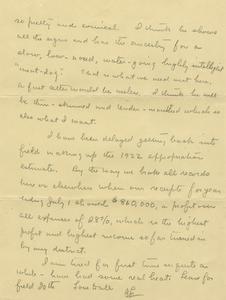 so pretty and comical. I think he shows
all the signs and has the ancestry for a
slow, low-voiced, water-going highly intelligent
"meat-dog." That is what we need most here,
a fast setter would be useless. I think he will
be thin-skinned and tender-mouthed which is
also what I want.
I have been delayed getting back into
field making up the 1922 appropriation
estimate. By the way we broke all records
here or elsewhere when our receipts for year
ending July 1 showed $860,000, a profit over
all expenses of 287%, which is the highest
profit and highest income so far turned in
by any district.
I am tired for first time in quite a
while - have had some real heat. Leave for
field 20th. Love to all